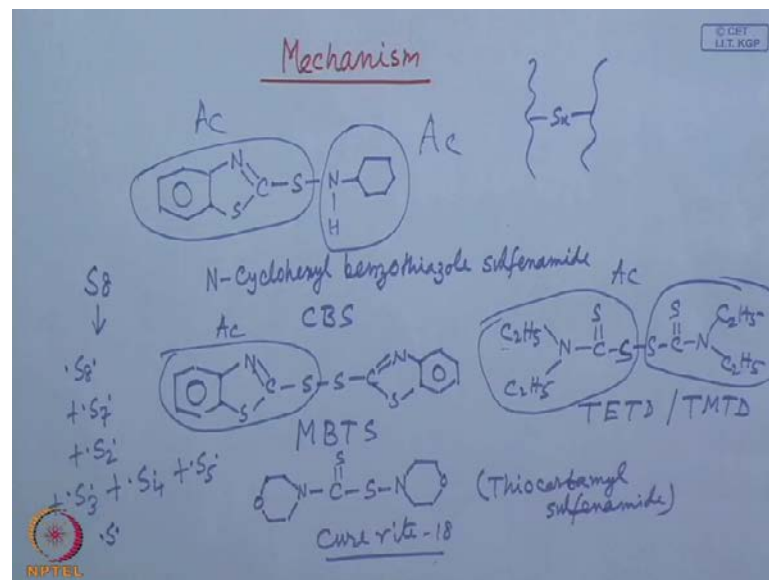 © CET
I.I.T. KGP
Mechanism
Ac
Ac
Sx
N
C - S - N
S
H
N-Cyclohexyl benzothiazole sulfenamide
CBS
S8
↓
·S8·
+·S7·
+·S2·
+·S3· +·S4· +·S5·
·S·
Ac
N
C - S - S - C = N
S
S
MBTS
Ac
C2H5
C2H5
N - C - S - S - C - N
S
S
C2H5
C2H5
TETD / TMTD
S
O
N - C - S - N
O
(Thiocarbamyl
sulfenamide)
Cure rite-18
NPTEL